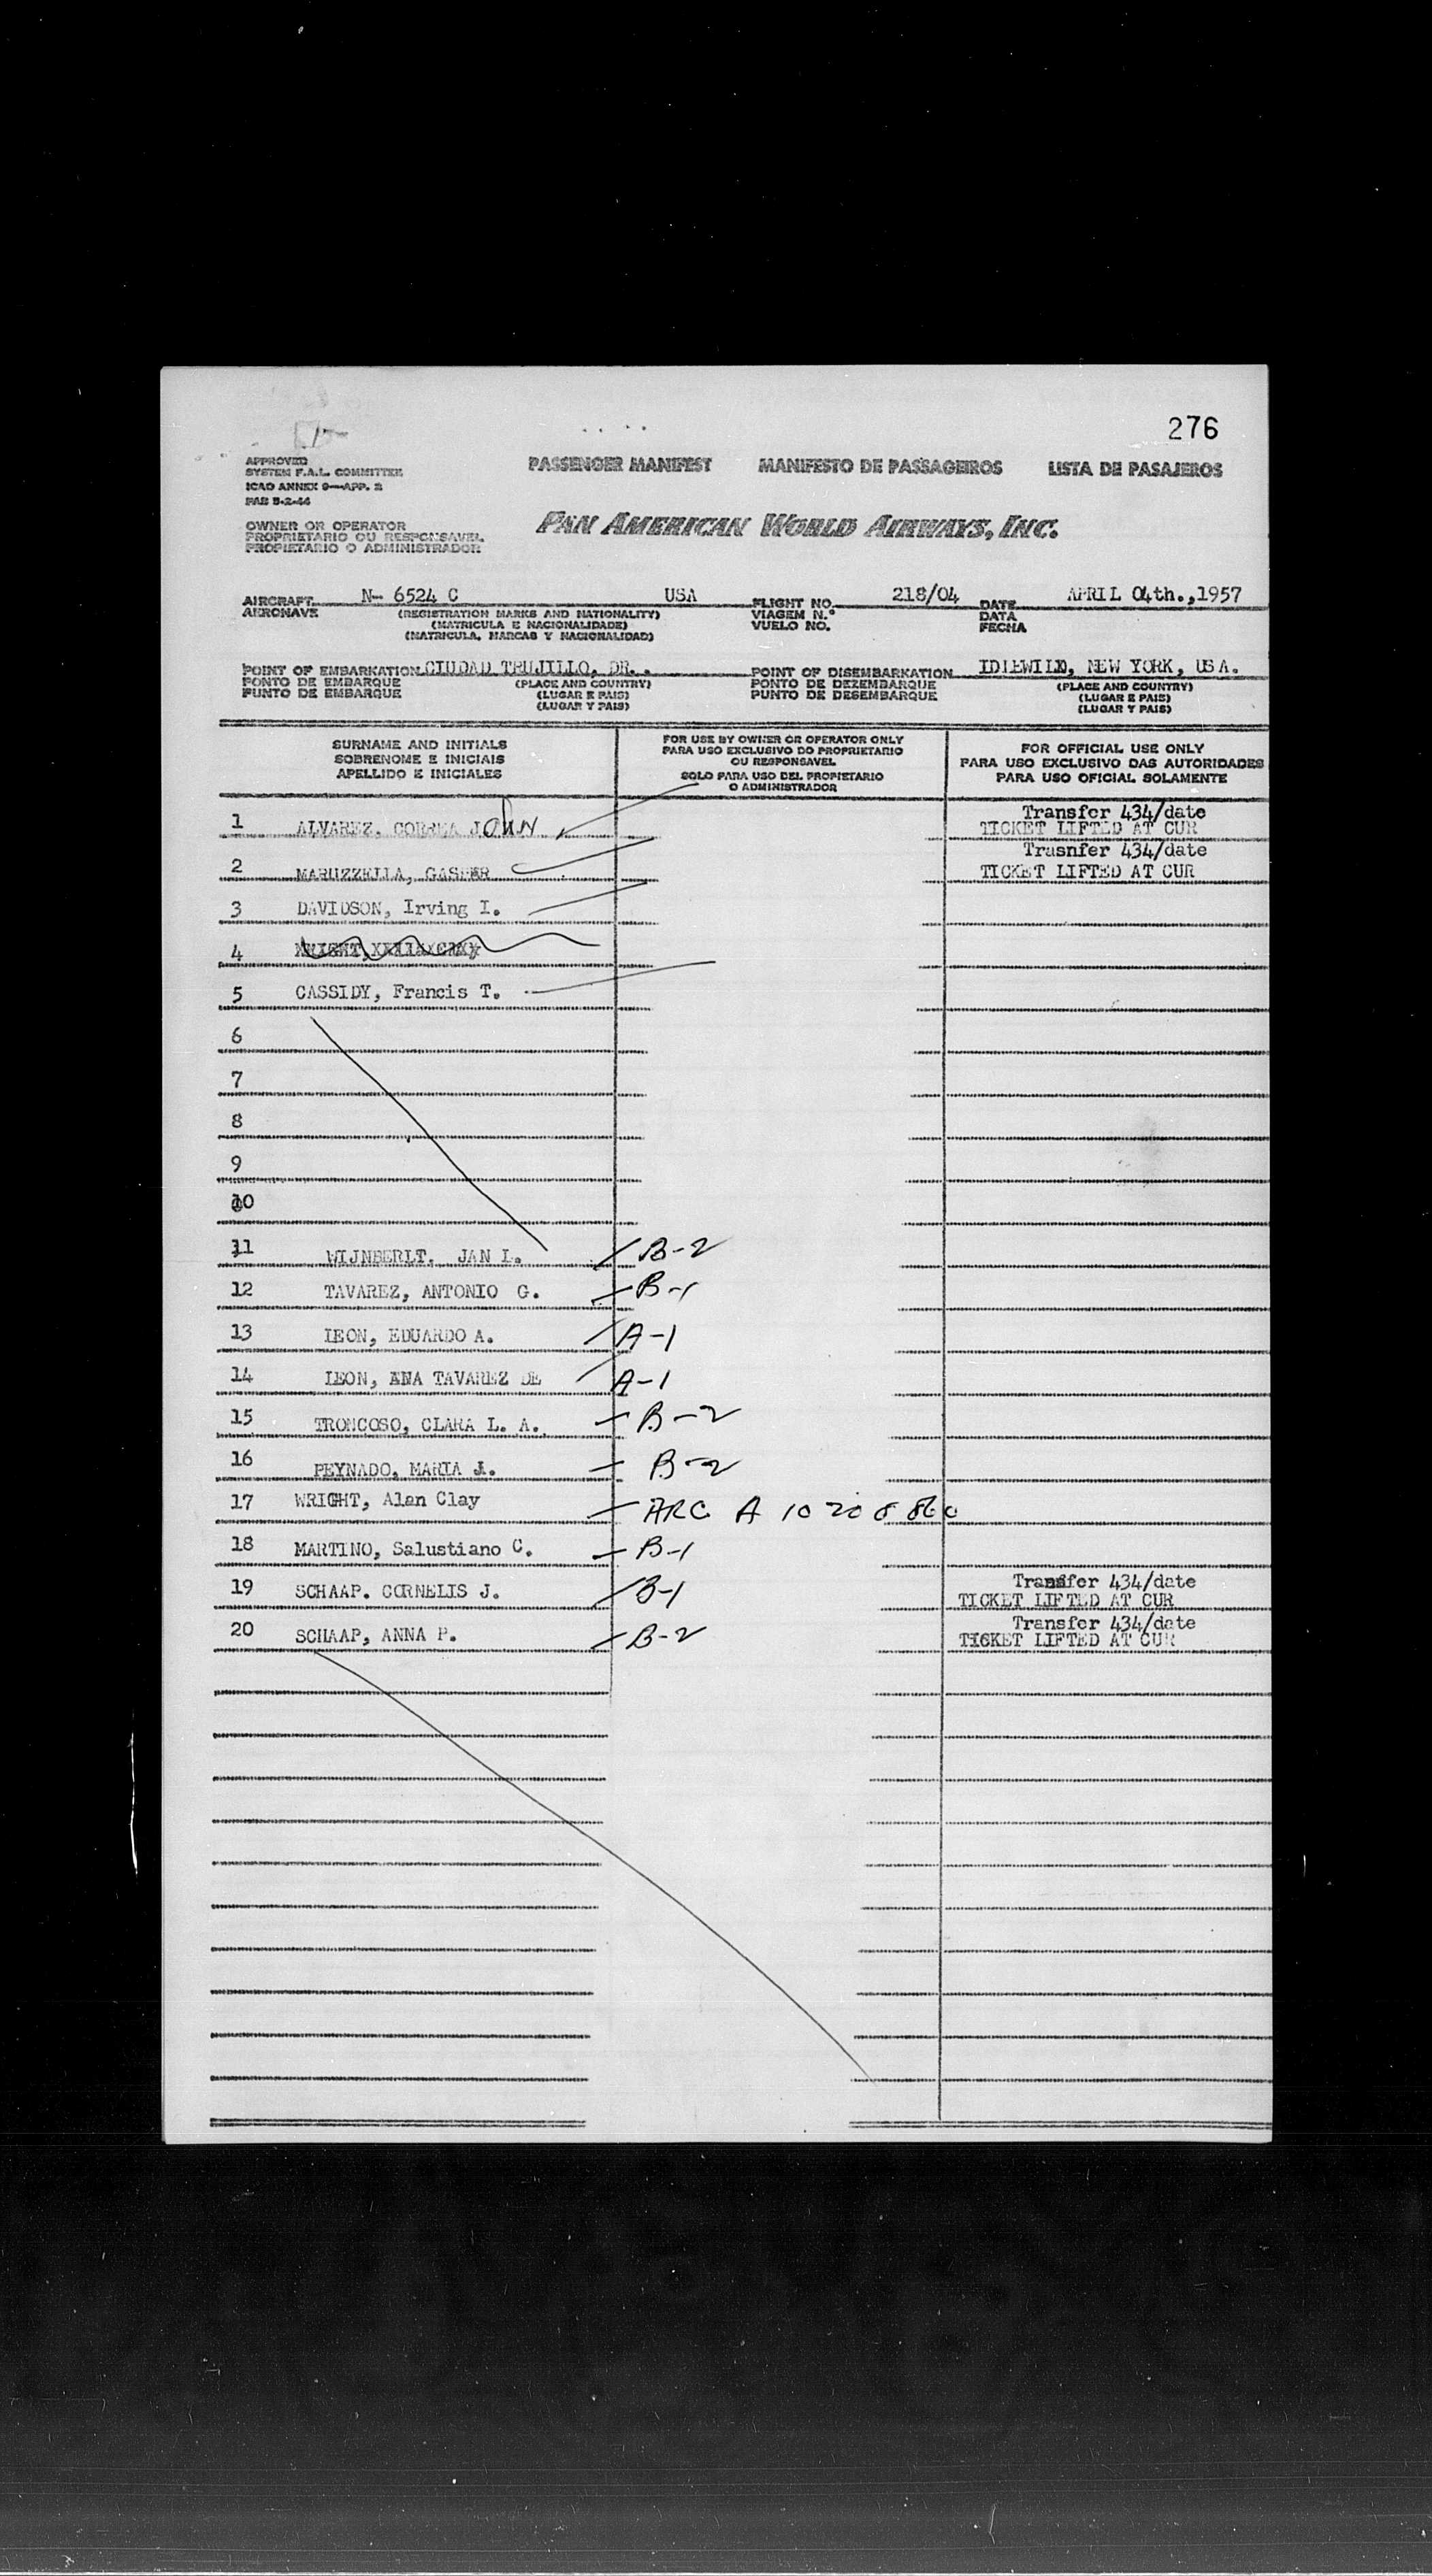 276
APPROVED
SYSTEM F.A.L. COMMITTEE
ICAO ANNEX 9—APP. 2
PAB 5-2-44
PASSENGER MANIFEST MANIFESTO DE PASSAGEIROS LISTA DE PASAJEROS
OWNER OR OPERATOR
PROPRIETARIO OU RESPONSAVEL
PROPIETARIO O ADMINISTRADOR
PAN AMERICAN WORLD AIRWAYS, INC.
AIRCRAFT N- 6524 C USA FLIGHT NO. 218/04 DATE APRIL 04th.,1957
AERONAVE (REGISTRATION MARKS AND NATIONALITY) VIAGEM N.° DATA
(MATRICULA E NACIONALIDADE) VUELO NO. FECHA
(MATRICULA, MARCAS Y NACIONALIDAD)
POINT OF EMBARKATION CIUDAD TRUJILLO, DR. . POINT OF DISEMBARKATION IDLEWILD, NEW YORK, USA.
PONTO DE EMBARQUE (PLACE AND COUNTRY) PONTO DE DEZEMBARQUE (PLACE AND COUNTRY)
PUNTO DE EMBARQUE (LUGAR E PAIS) PUNTO DE DESEMBARQUE (LUGAR E PAIS)
(LUGAR Y PAIS) (LUGAR Y PAIS)
SURNAME AND INITIALS
SOBRENOME E INICIAIS
APELLIDO E INICIALES
FOR USE BY OWNER OR OPERATOR ONLY
PARA USO EXCLUSIVO DO PROPRIETARIO
OU RESPONSAVEL
SOLO PARA USO DEL PROPIETARIO
O ADMINISTRADOR
FOR OFFICIAL USE ONLY
PARA USO EXCLUSIVO DAS AUTORIDADES
PARA USO OFICIAL SOLAMENTE
1 ALVAREZ. CORREA JOHN Transfer 434/date
TICKET LIFTED AT CUR
2 MARUZZELLA, GASPER Trasnfer 434/date
TICKET LIFTED AT CUR
3 DAVIDSON, Irving I.
4
5 CASSIDY, Francis T.
6
7
8
9
10
11 WIJNBERLT. JAN L. B-2
12 TAVAREZ, ANTONIO G. B-1
13 LEON, EDUARDO A. A-1
14 LEON, ANA TAVAREZ DE A-1
15 TRONCOSO, CLARA L. A. B-2
16 PEYNADO, MARIA J. B-2
17 WRIGHT, Alan Clay ARC A 10 20 8 860
18 MARTINO, Salustiano C. B-1
19 SCHAAP. CORNELIS J. B-1 Transfer 434/date
TICKET LIFTED AT CUR
20 SCHAAP, ANNA P. B-2 Transfer 434/date
TICKET LIFTED AT CUR